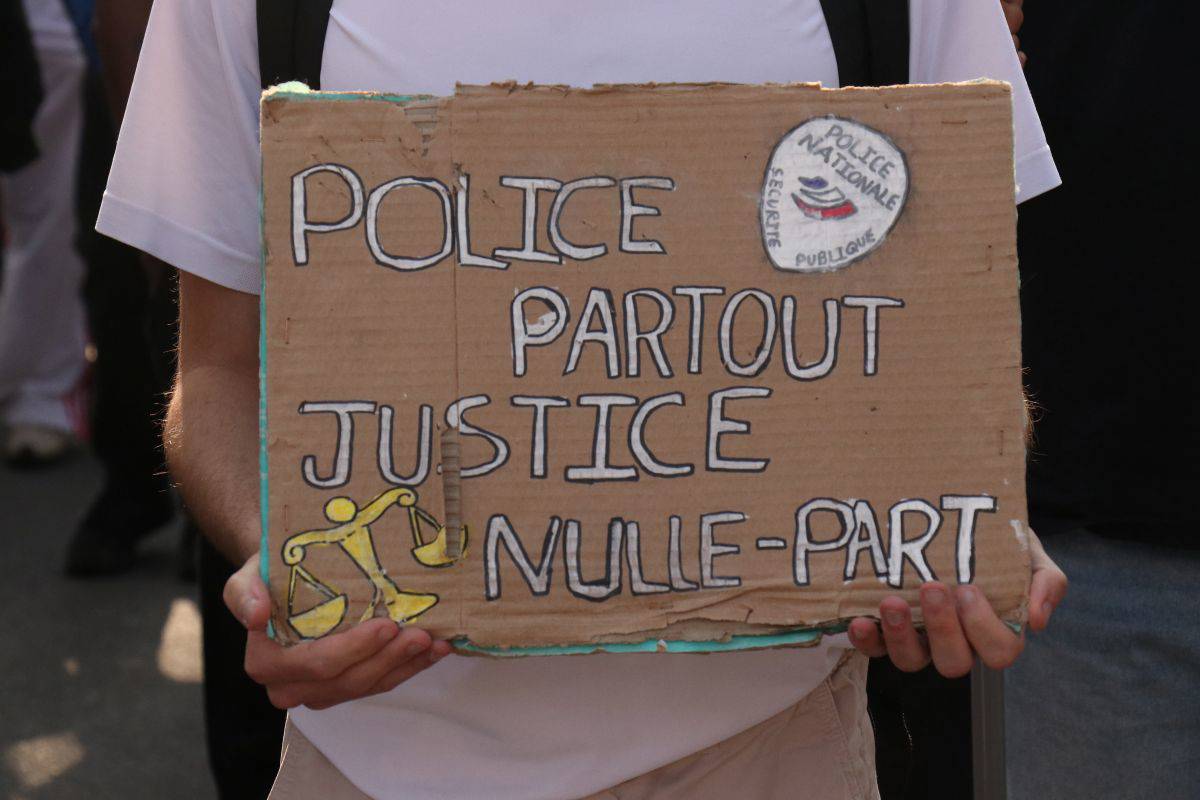 POLICE
POLICE
NATIONALE
SÉCURITÉ
PUBLIQUE
PARTOUT
JUSTICE
NULLE-PART